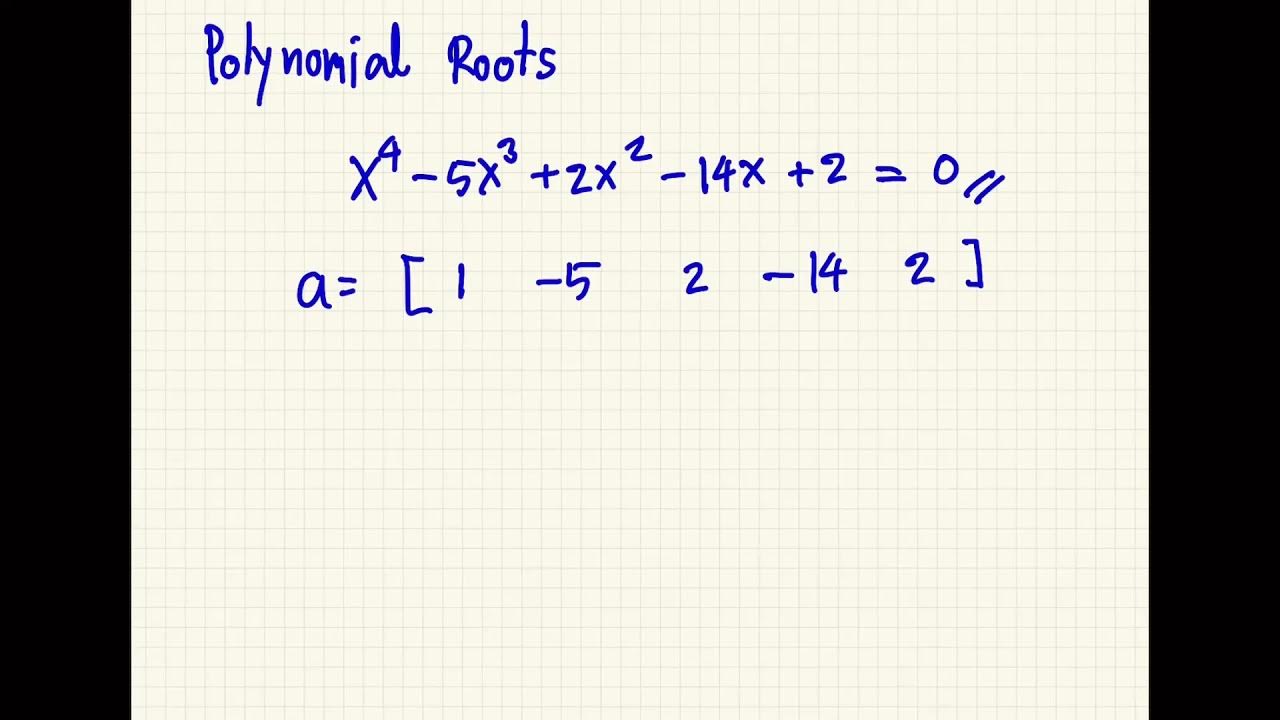 Polynomial Roots
x⁴ - 5x³ + 2x² - 14x + 2 = 0 //
a = [ 1 -5 2 -14 2 ]